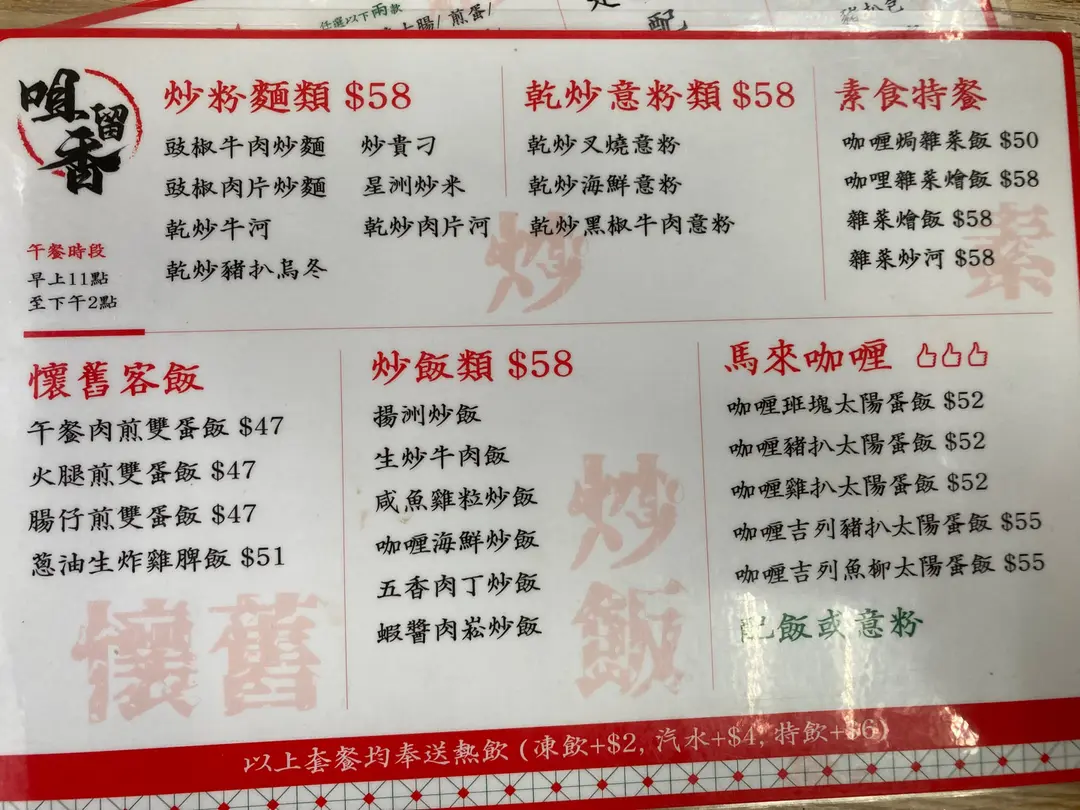 任選以下兩款
煎蛋/
配
豬扒包
咀留香
午餐時段
早上11點
至下午2點
炒粉麵類 $58
豉椒牛肉炒麵 炒貴刁
豉椒肉片炒麵 星洲炒米
乾炒牛河 乾炒肉片河
乾炒豬扒烏冬
炒
乾炒意粉類 $58
乾炒叉燒意粉
乾炒海鮮意粉
乾炒黑椒牛肉意粉
素食特餐
咖喱焗雜菜飯 $50
咖哩雜菜燴飯 $58
雜菜燴飯 $58
雜菜炒河 $58
素
懷舊客飯
午餐肉煎雙蛋飯 $47
火腿煎雙蛋飯 $47
腸仔煎雙蛋飯 $47
蔥油生炸雞脾飯 $51
懷舊
炒飯類 $58
揚洲炒飯
生炒牛肉飯
咸魚雞粒炒飯
咖喱海鮮炒飯
五香肉丁炒飯
蝦醬肉崧炒飯
炒飯
馬來咖喱
咖喱班塊太陽蛋飯 $52
咖喱豬扒太陽蛋飯 $52
咖喱雞扒太陽蛋飯 $52
咖喱吉列豬扒太陽蛋飯 $55
咖喱吉列魚柳太陽蛋飯 $55
配飯或意粉
以上套餐均奉送熱飲 (凍飲+$2, 汽水+$4, 特飲+$6)